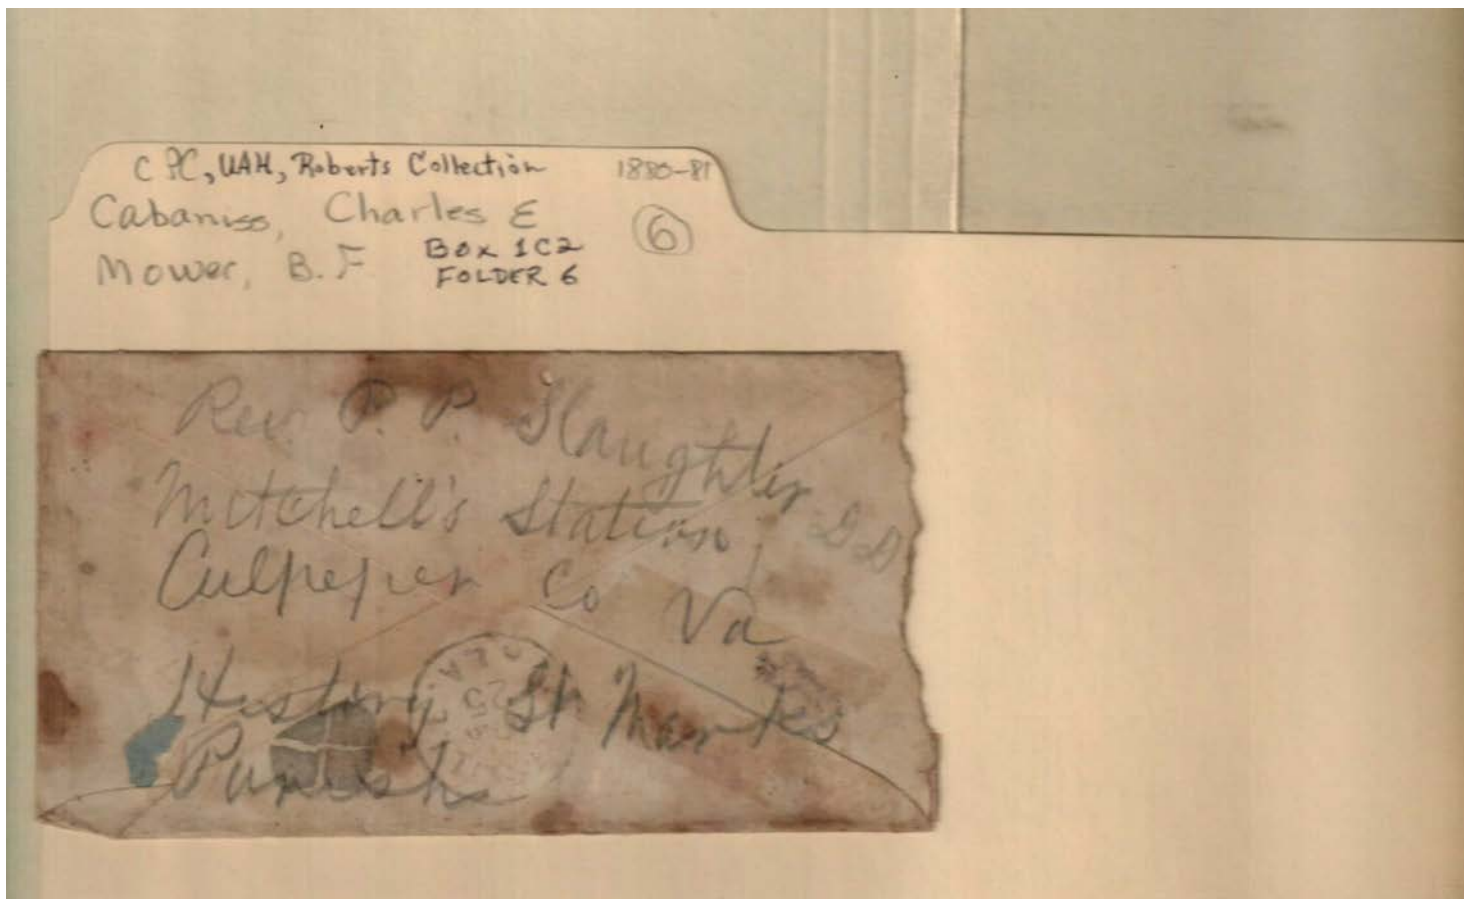 C PC, UAH, Roberts Collection 1880-81
Cabaniss, Charles E
Mower, B. F
6
BOX 1C2
FOLDER 6
Rev. P. P. Slaughter D D
Mitchell's Station,
Culpeper Co Va
History St Marks
Parish
25